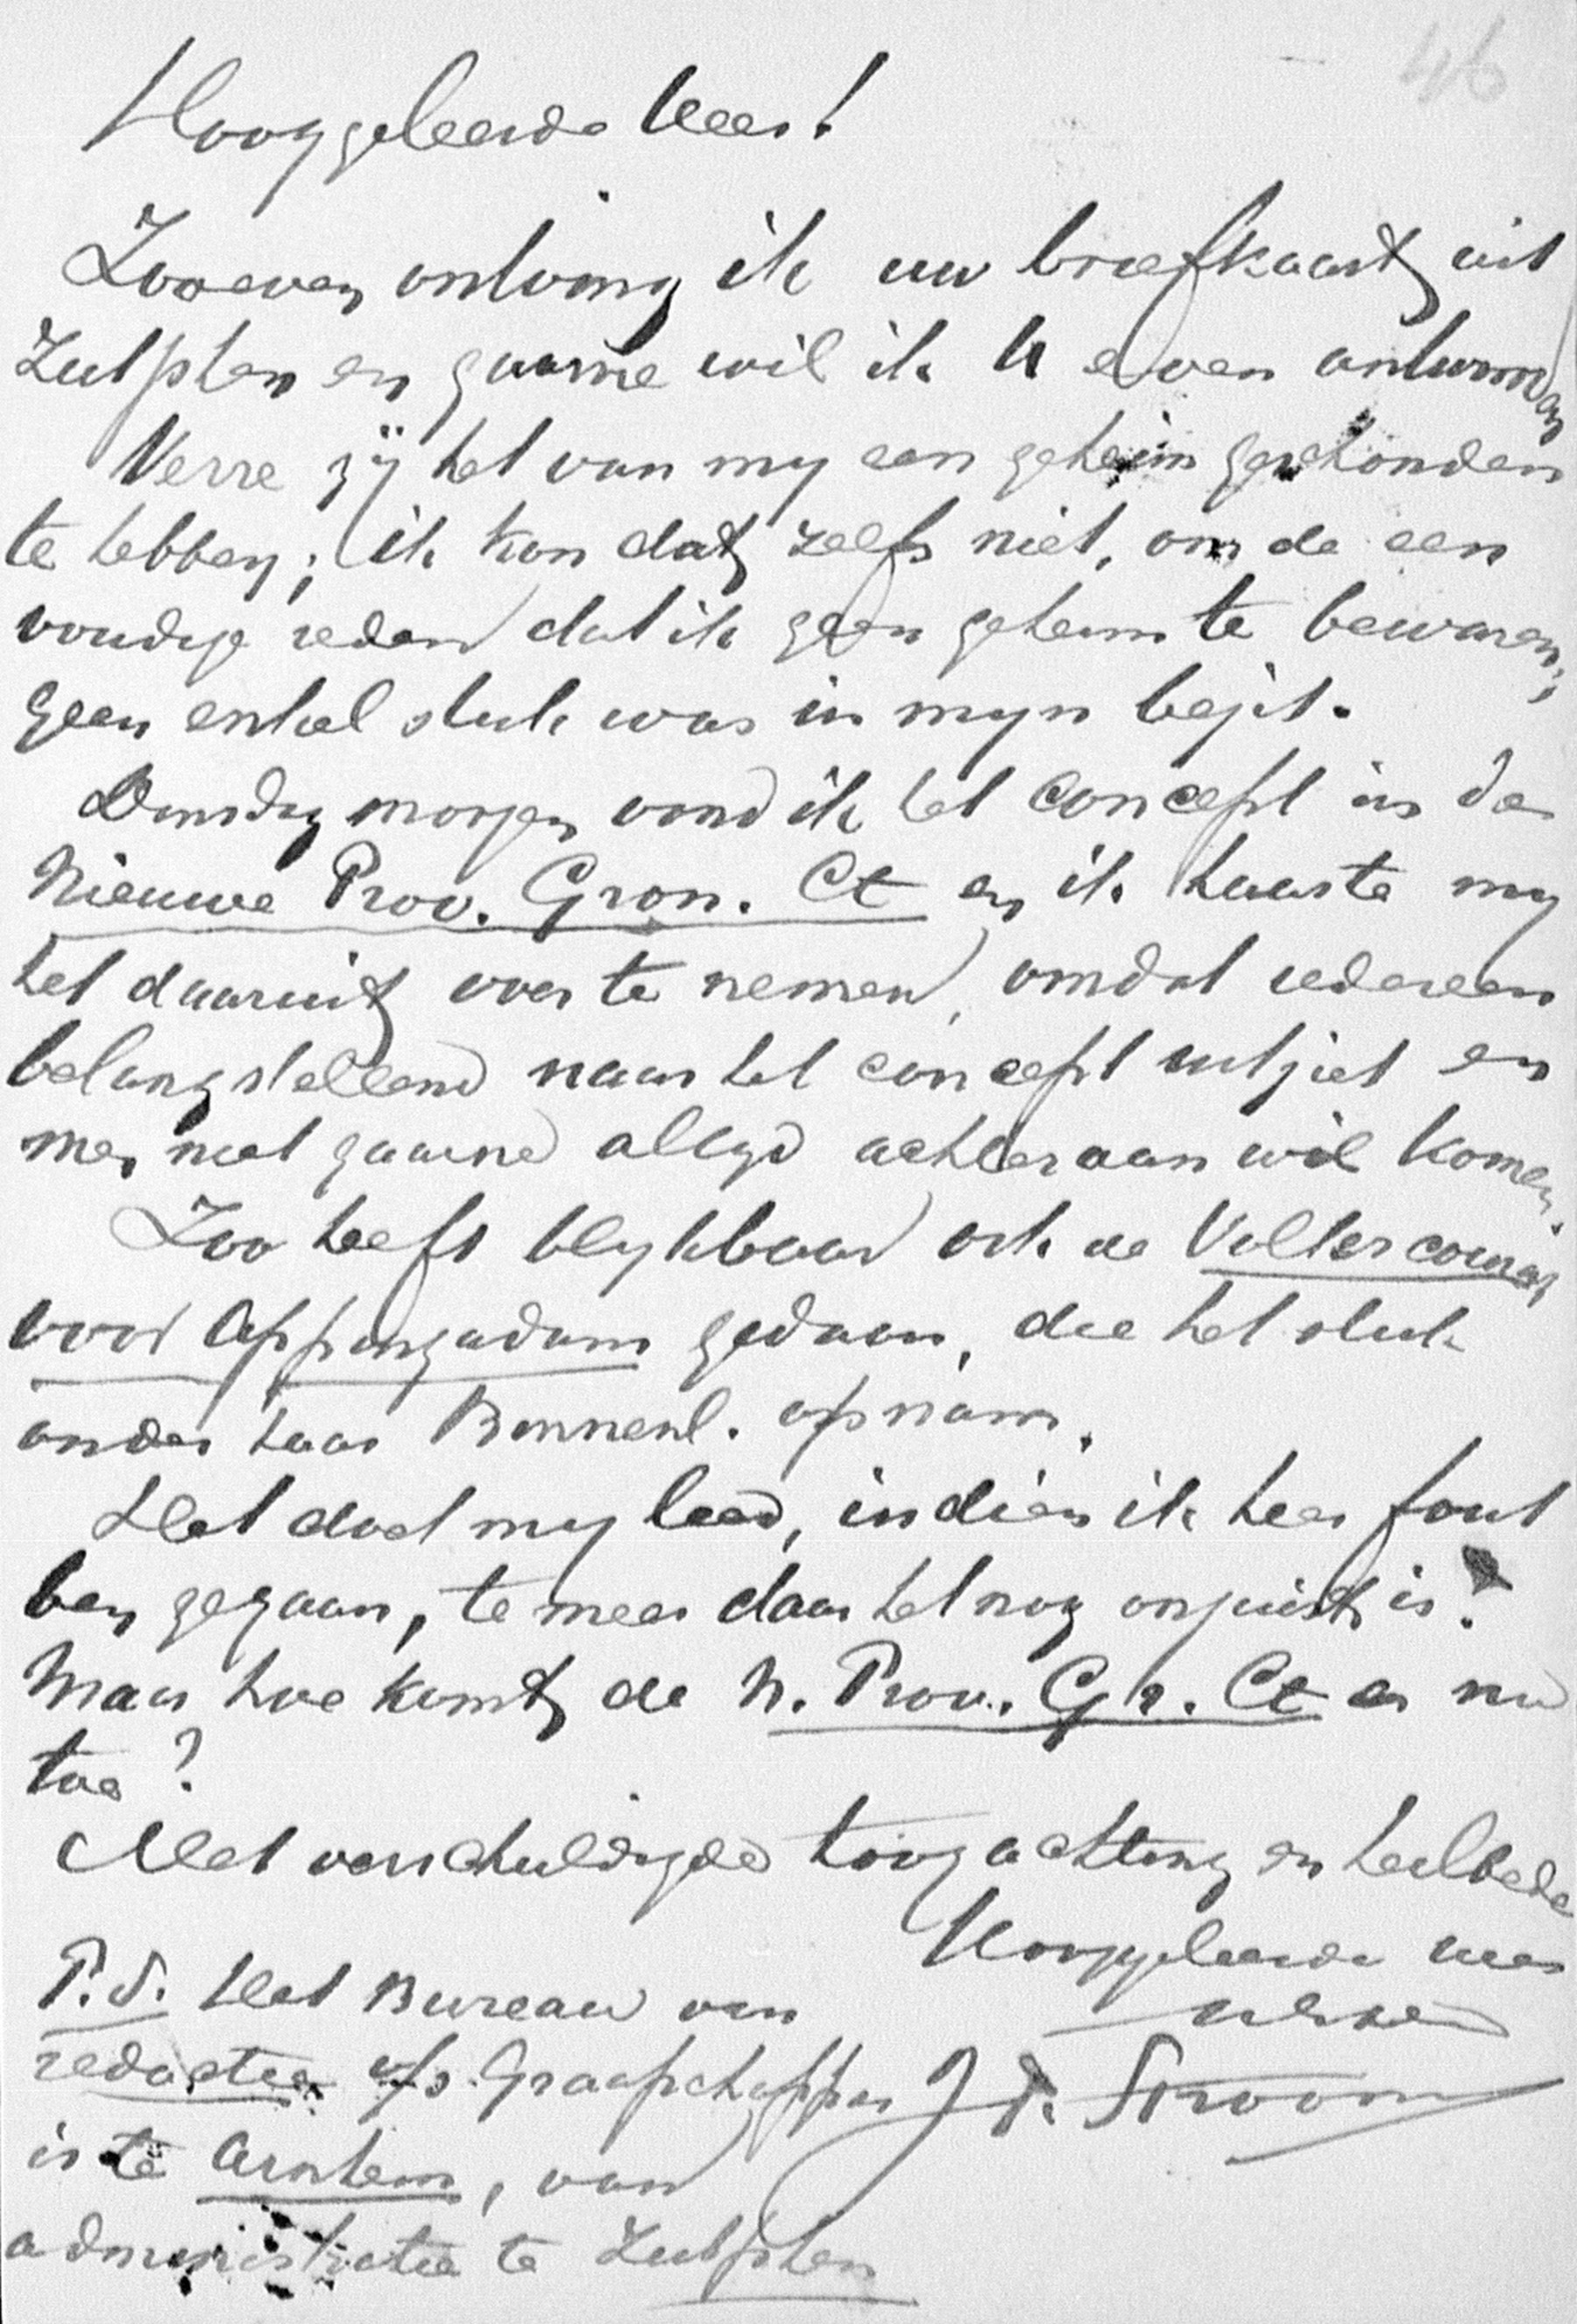 46
Hooggeleerde Heer!
Zooeven ontving ik uw briefkaart uit
Zutphen en gaarne wil ik U even antwoorden
Verre zÿ het van my een geheim geschonden
te hebben; ik kon dat zelfs niet, om de een
voudige reden dat ik geen geheim te bewaren,
geen enkel stuk was in myn bezit.
Dinsdag morgen vond ik het concept in de
Nieuwe Prov. Gron. Ct en ik haaste my
het daaruit over te nemen, omdat iedereen
belangstellend naar het concept uitziet en
men niet gaarne altyd achteraan wil komen.
Zoo heeft blykbaar ook de Volkscourant
voor Appingadam gedaan, die het stuk
onder haar Binnenl. opnam.
Het doet my leed, indien ik hier fout
ben gegaan, te meer daar het nog onjuist is!
Maar hoe komt de N. Prov. Gr. Ct er nu
toe?
Met verschuldigde hoogachting en heilbede
Hooggeleerde Heer
P.S. Het Bureau van
redactie v/d Graafschapper
J. d. Stroom
is te Arnhem, van
administratie te Zutphen